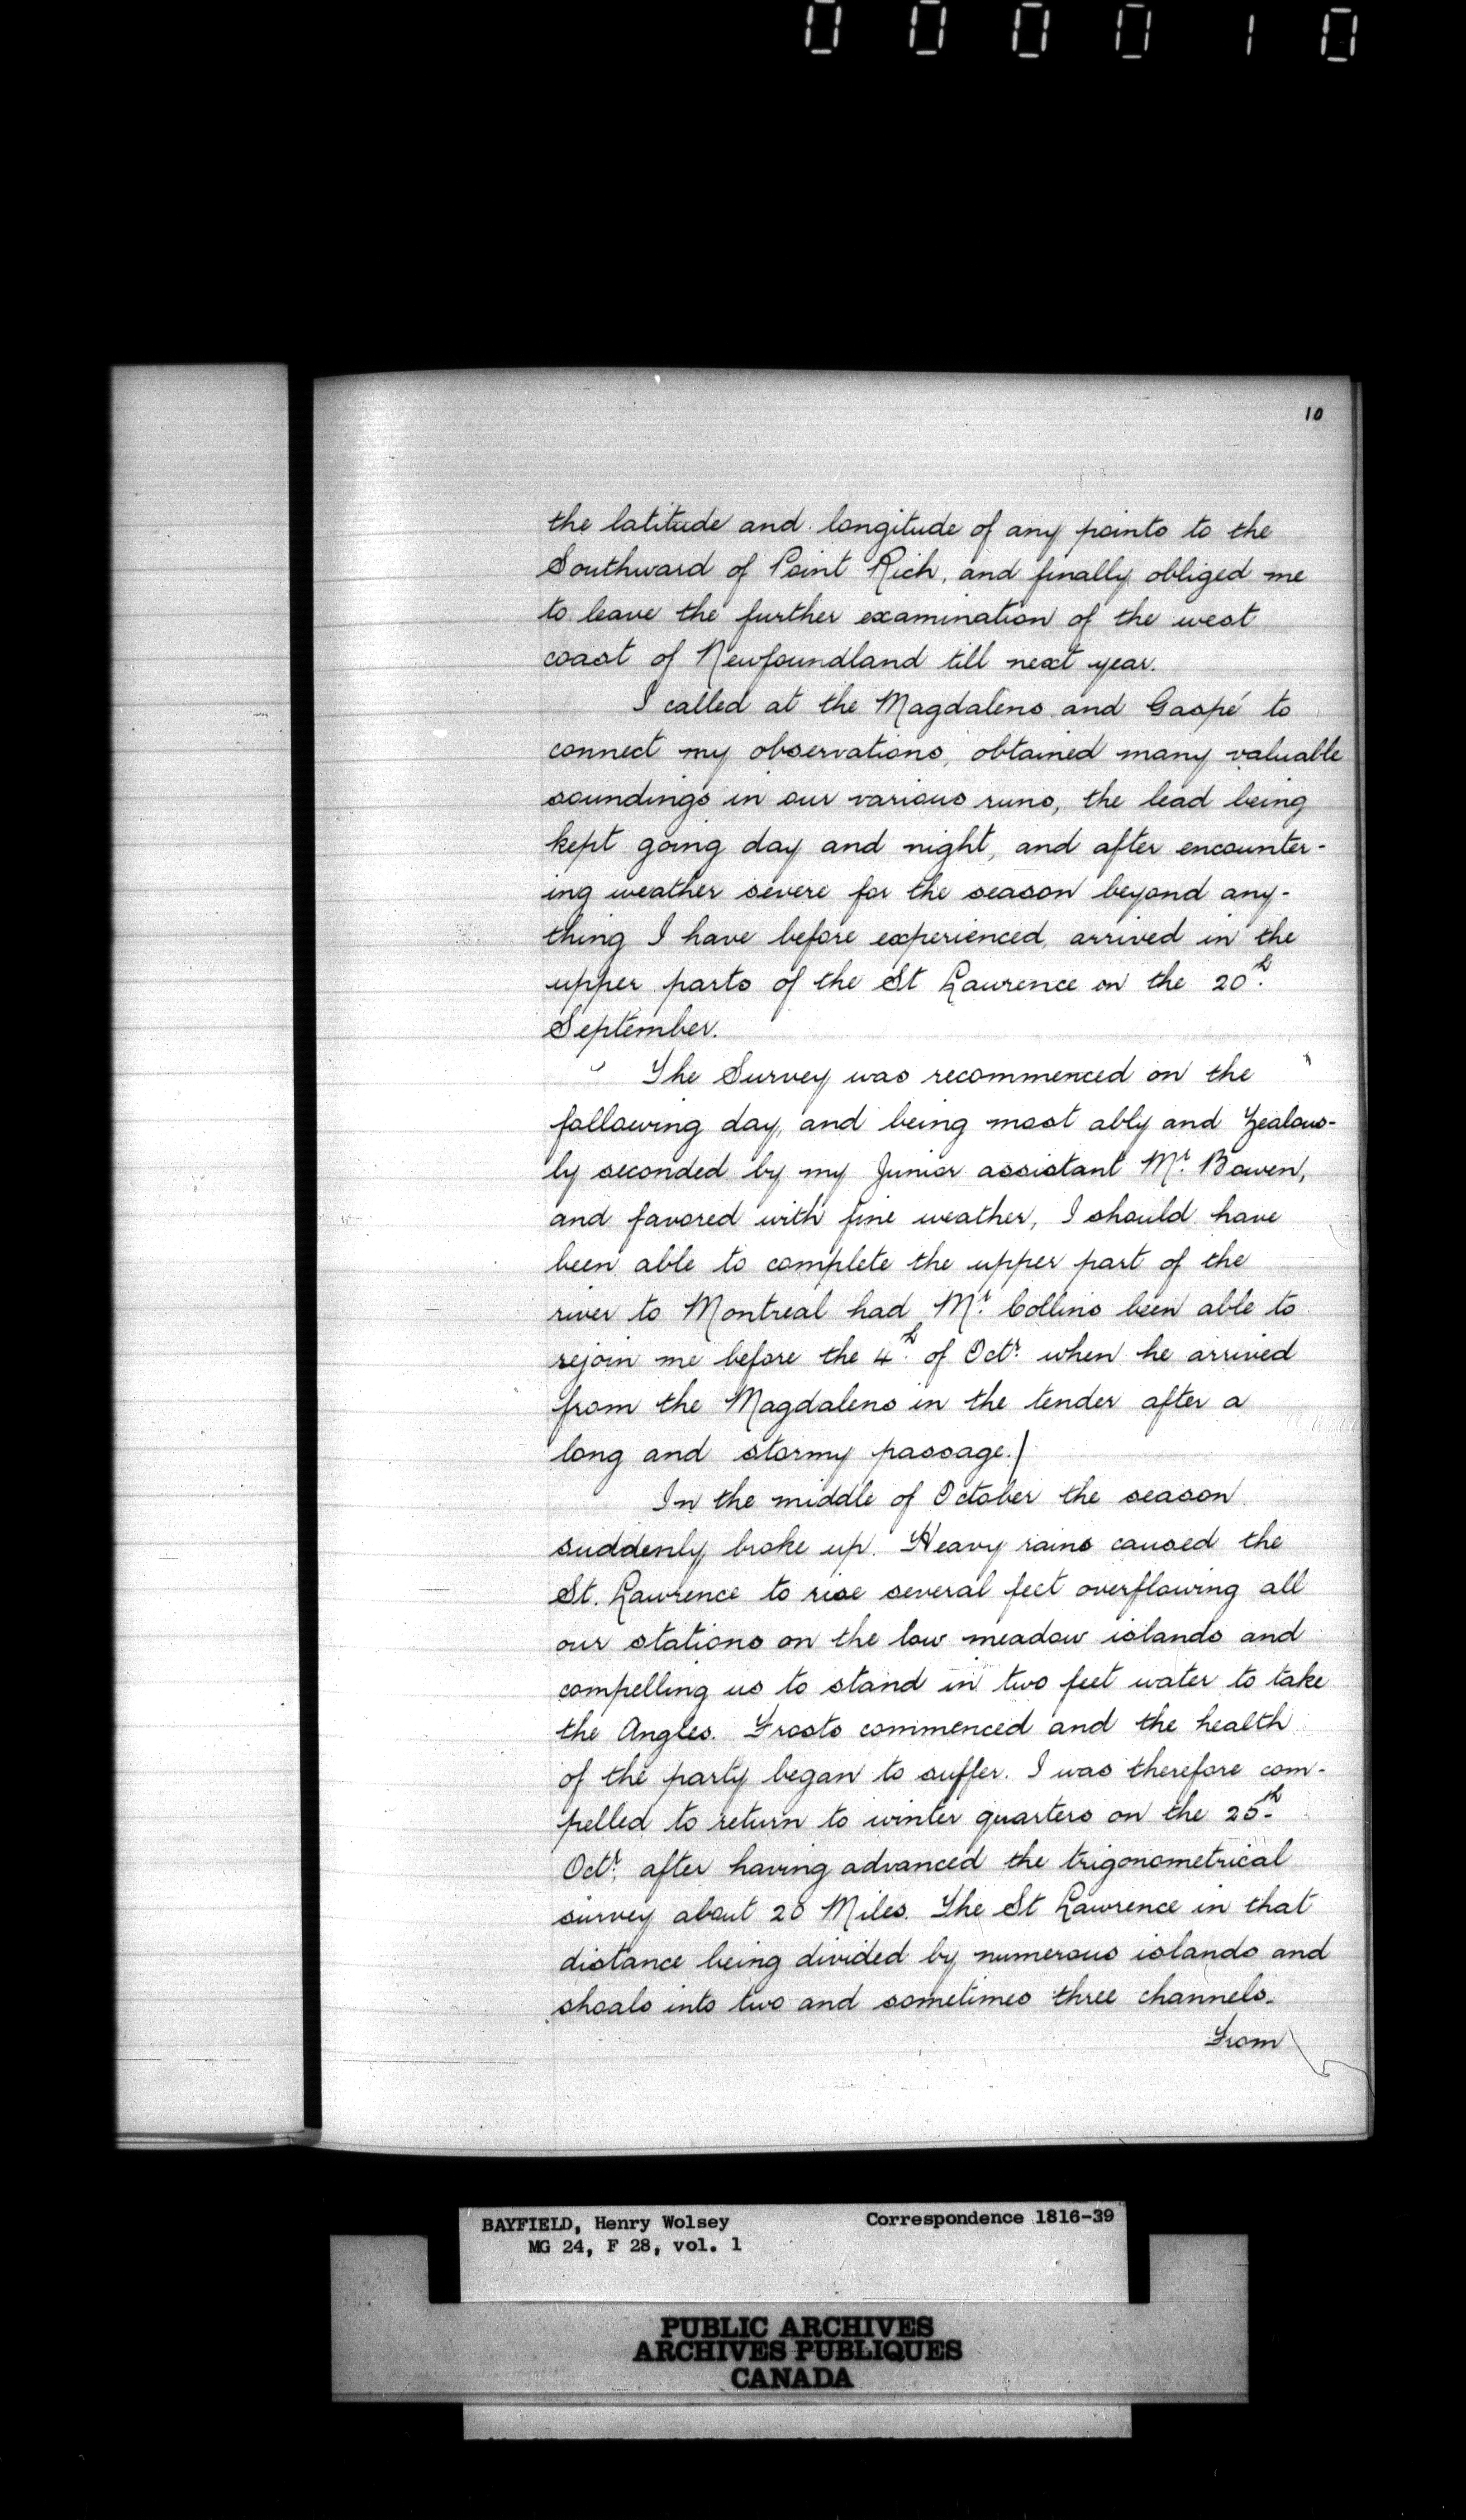 0 0 0 0 1 0
10
the latitude and longitude of any points to the
Southward of Point Rich, and finally obliged me
to leave the further examination of the west
coast of Newfoundland till next year.
I called at the Magdalens and Gaspé to
connect my observations, obtained many valuable
soundings in our various runs, the lead being
kept going day and night, and after encounter-
ing weather severe for the season beyond any-
thing I have before experienced, arrived in the
upper parts of the St Lawrence on the 20th.
September.
The Survey was recommenced on the
following day, and being most ably and zealous-
ly seconded by my Junior assistant Mr. Bowen,
and favored with fine weather, I should have
been able to complete the upper part of the
river to Montreal had Mr. Collins been able to
rejoin me before the 4th. of Octr. when he arrived
from the Magdalens in the tender after a
long and stormy passage./
In the middle of October the season
suddenly broke up. Heavy rains caused the
St. Lawrence to rise several feet overflowing all
our stations on the low meadow islands and
compelling us to stand in two feet water to take
the Angles. Frosts commenced and the health
of the party began to suffer. I was therefore com-
pelled to return to winter quarters on the 25th
Octr. after having advanced the trigonometrical
survey about 20 Miles. The St Lawrence in that
distance being divided by numerous islands and
shoals into two and sometimes three channels.
From
BAYFIELD, Henry Wolsey Correspondence 1816-39
MG 24, F 28, vol. 1
PUBLIC ARCHIVES
ARCHIVES PUBLIQUES
CANADA